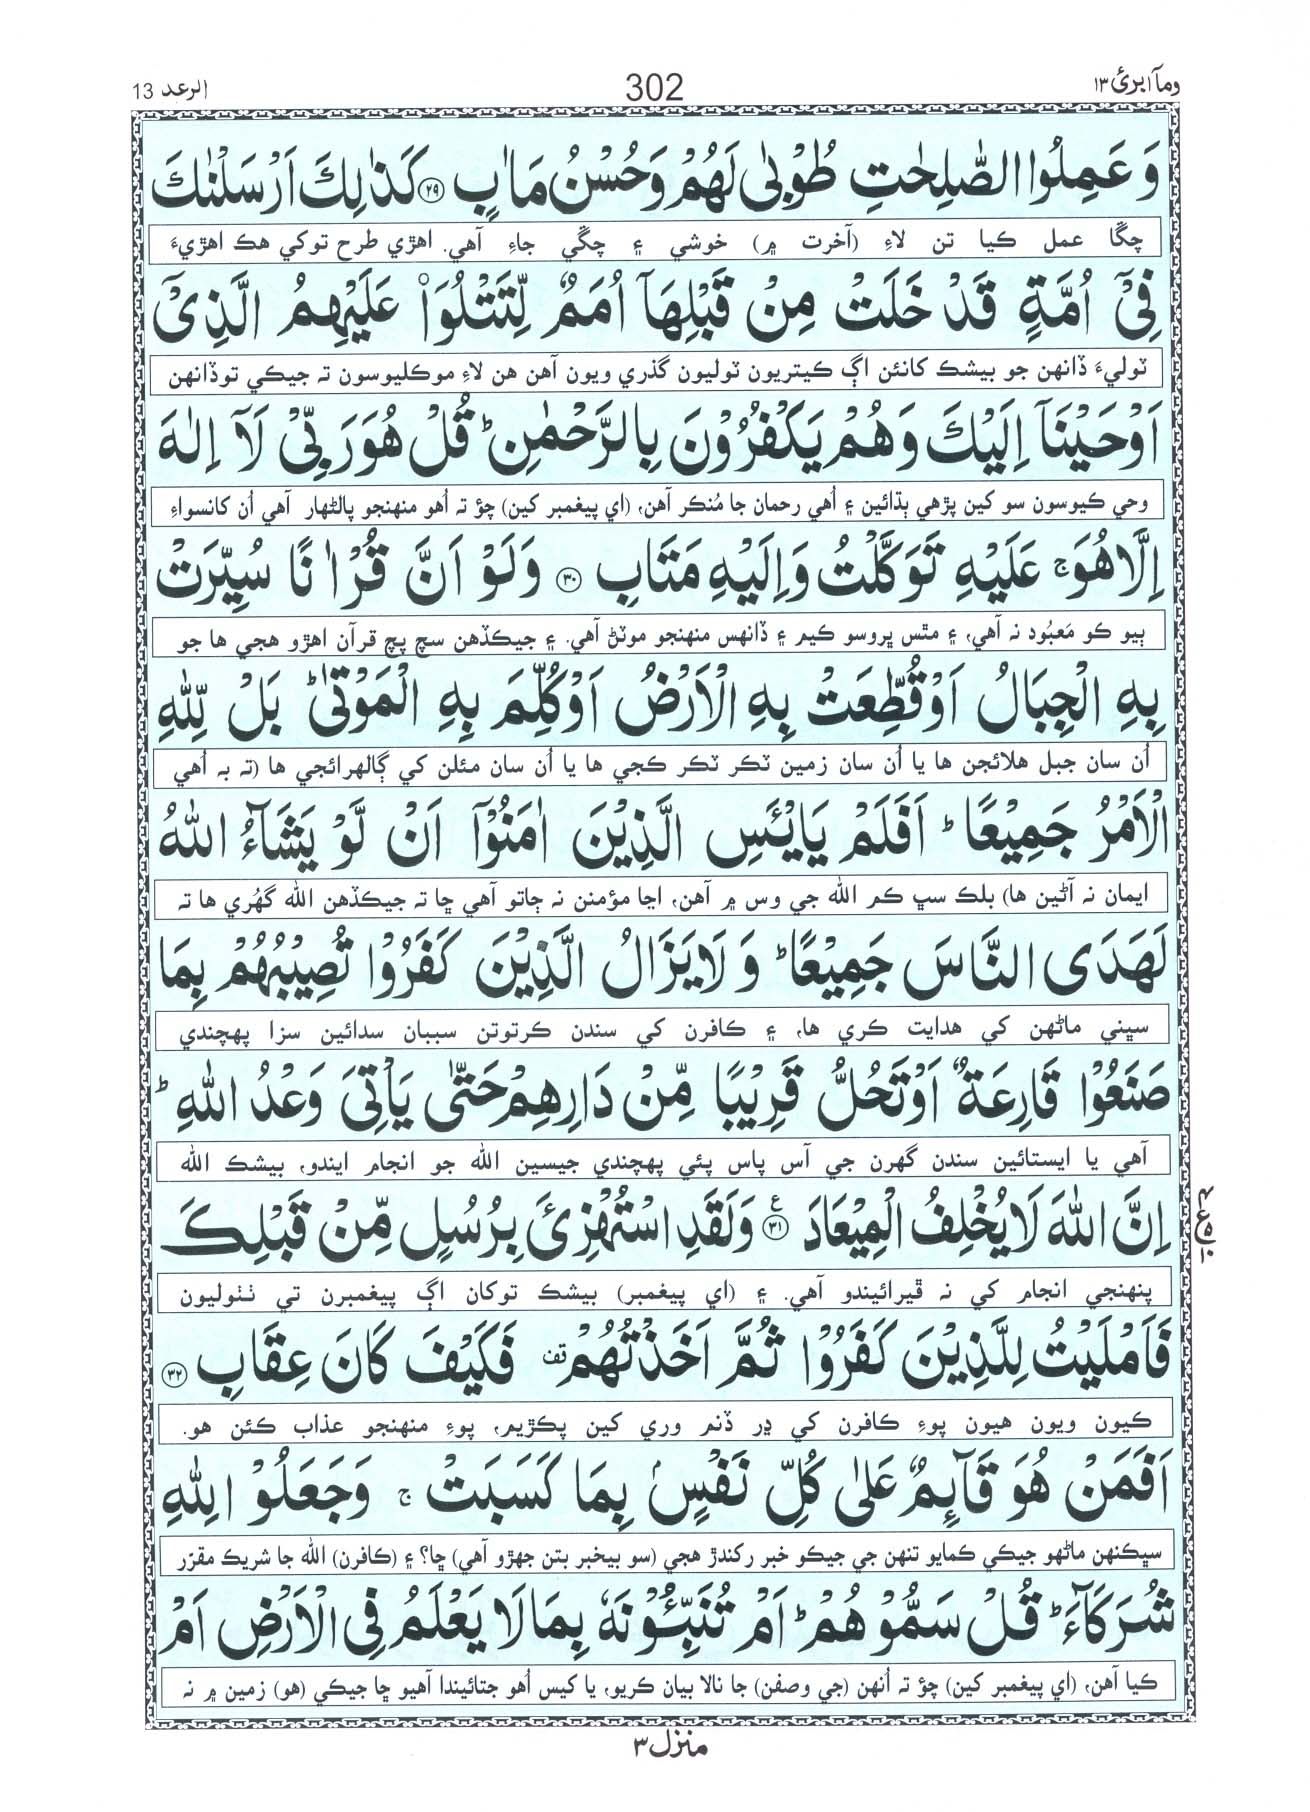 وما ابرئ ١٣
302
الرعد 13
وَعَمِلُوا الصّٰلِحٰتِ طُوْبٰى لَهُمْ وَحُسْنُ مَاٰبٍ ﴿٢٩﴾ كَذٰلِكَ اَرْسَلْنٰكَ
چڱا عمل ڪيا تن لاءِ (آخرت ۾) خوشي ۽ چڱي جاءِ آهي. اهڙي طرح توکي هڪ اهڙيءَ
فِيْۤ اُمَّةٍ قَدْ خَلَتْ مِنْ قَبْلِهَاۤ اُمَمٌ لِّتَتْلُوَا۟ عَلَيْهِمُ الَّذِيْۤ
ٽوليءَ ڏانهن جو بيشڪ کانئن اڳ ڪيتريون ٽوليون گذري ويون آهن هن لاءِ موڪليوسون تہ جيڪي توڏانهن
اَوْحَيْنَاۤ اِلَيْكَ وَهُمْ يَكْفُرُوْنَ بِالرَّحْمٰنِ ؕ قُلْ هُوَ رَبِّيْ لَاۤ اِلٰهَ
وحي ڪيوسون سو کين پڙهي ٻڌائين ۽ اُهي رحمان جا مُنڪر آهن، (اي پيغمبر کين) چؤ تہ اُهو منهنجو پالڻهار آهي اُن کانسواءِ
اِلَّا هُوَ ۚ عَلَيْهِ تَوَكَّلْتُ وَاِلَيْهِ مَتَابِ ﴿٣٠﴾ وَلَوْ اَنَّ قُرْاٰنًا سُيِّرَتْ
ٻيو ڪو مَعبُود نہ آهي، ۽ مٿس ڀروسو ڪيم ۽ ڏانهس منهنجو موٽڻ آهي. ۽ جيڪڏهن سچ پچ قرآن اهڙو هجي ها جو
بِهِ الْجِبَالُ اَوْ قُطِّعَتْ بِهِ الْاَرْضُ اَوْ كُلِّمَ بِهِ الْمَوْتٰى ؕ بَلْ لِّلّٰهِ
اُن سان جبل هلائجن ها يا اُن سان زمين ٽڪر ٽڪر ڪجي ها يا اُن سان مئلن کي ڳالهرائجي ها (تہ بہ اُهي
الْاَمْرُ جَمِيْعًا ؕ اَفَلَمْ يَايْـَٔسِ الَّذِيْنَ اٰمَنُوْۤا اَنْ لَّوْ يَشَآءُ اللّٰهُ
ايمان نہ آڻين ها) بلڪ سڀ ڪم الله جي وس ۾ آهن، اڃا مؤمنن نہ ڄاتو آهي ڇا تہ جيڪڏهن الله گهُري ها تہ
لَهَدَى النَّاسَ جَمِيْعًا ؕ وَلَا يَزَالُ الَّذِيْنَ كَفَرُوْا تُصِيْبُهُمْ بِمَا
سڀني ماڻهن کي هدايت ڪري ها، ۽ ڪافرن کي سندن ڪرتوتن سببان سدائين سزا پهچندي
صَنَعُوْا قَارِعَةٌ اَوْ تَحُلُّ قَرِيْبًا مِّنْ دَارِهِمْ حَتّٰى يَاْتِيَ وَعْدُ اللّٰهِ ؕ
آهي يا ايستائين سندن گهرن جي آس پاس پئي پهچندي جيسين الله جو انجام ايندو، بيشڪ الله
اِنَّ اللّٰهَ لَا يُخْلِفُ الْمِيْعَادَ ﴿٣١﴾ ع وَلَقَدِ اسْتُهْزِئَ بِرُسُلٍ مِّنْ قَبْلِكَ
پنهنجي انجام کي نہ ڦيرائيندو آهي. ۽ (اي پيغمبر) بيشڪ توکان اڳ پيغمبرن تي ٺٺوليون
فَاَمْلَيْتُ لِلَّذِيْنَ كَفَرُوْا ثُمَّ اَخَذْتُهُمْ قف فَكَيْفَ كَانَ عِقَابِ ﴿٣٢﴾
ڪيون ويون هيون پوءِ ڪافرن کي ڍر ڏنم وري کين پڪڙيم، پوءِ منهنجو عذاب ڪئن هو.
اَفَمَنْ هُوَ قَآىِٕمٌ عَلٰى كُلِّ نَفْسٍۭ بِمَا كَسَبَتْ ۚ وَجَعَلُوْا لِلّٰهِ
سڀڪنهن ماڻهو جيڪي ڪمايو تنهن جي جيڪو خبر رکندڙ هجي (سو بيخبر بتن جهڙو آهي) ڇا؟ ۽ (ڪافرن) الله جا شريڪ مقرر
شُرَكَآءَ ؕ قُلْ سَمُّوْهُمْ ؕ اَمْ تُنَبِّـُٔوْنَهٗ بِمَا لَا يَعْلَمُ فِي الْاَرْضِ اَمْ
ڪيا آهن، (اي پيغمبر کين) چؤ تہ اُنهن (جي وصفن) جا نالا بيان ڪريو، يا کيس اُهو جتائيندا آهيو ڇا جيڪي (هو) زمين ۾ نہ
منزل ٣